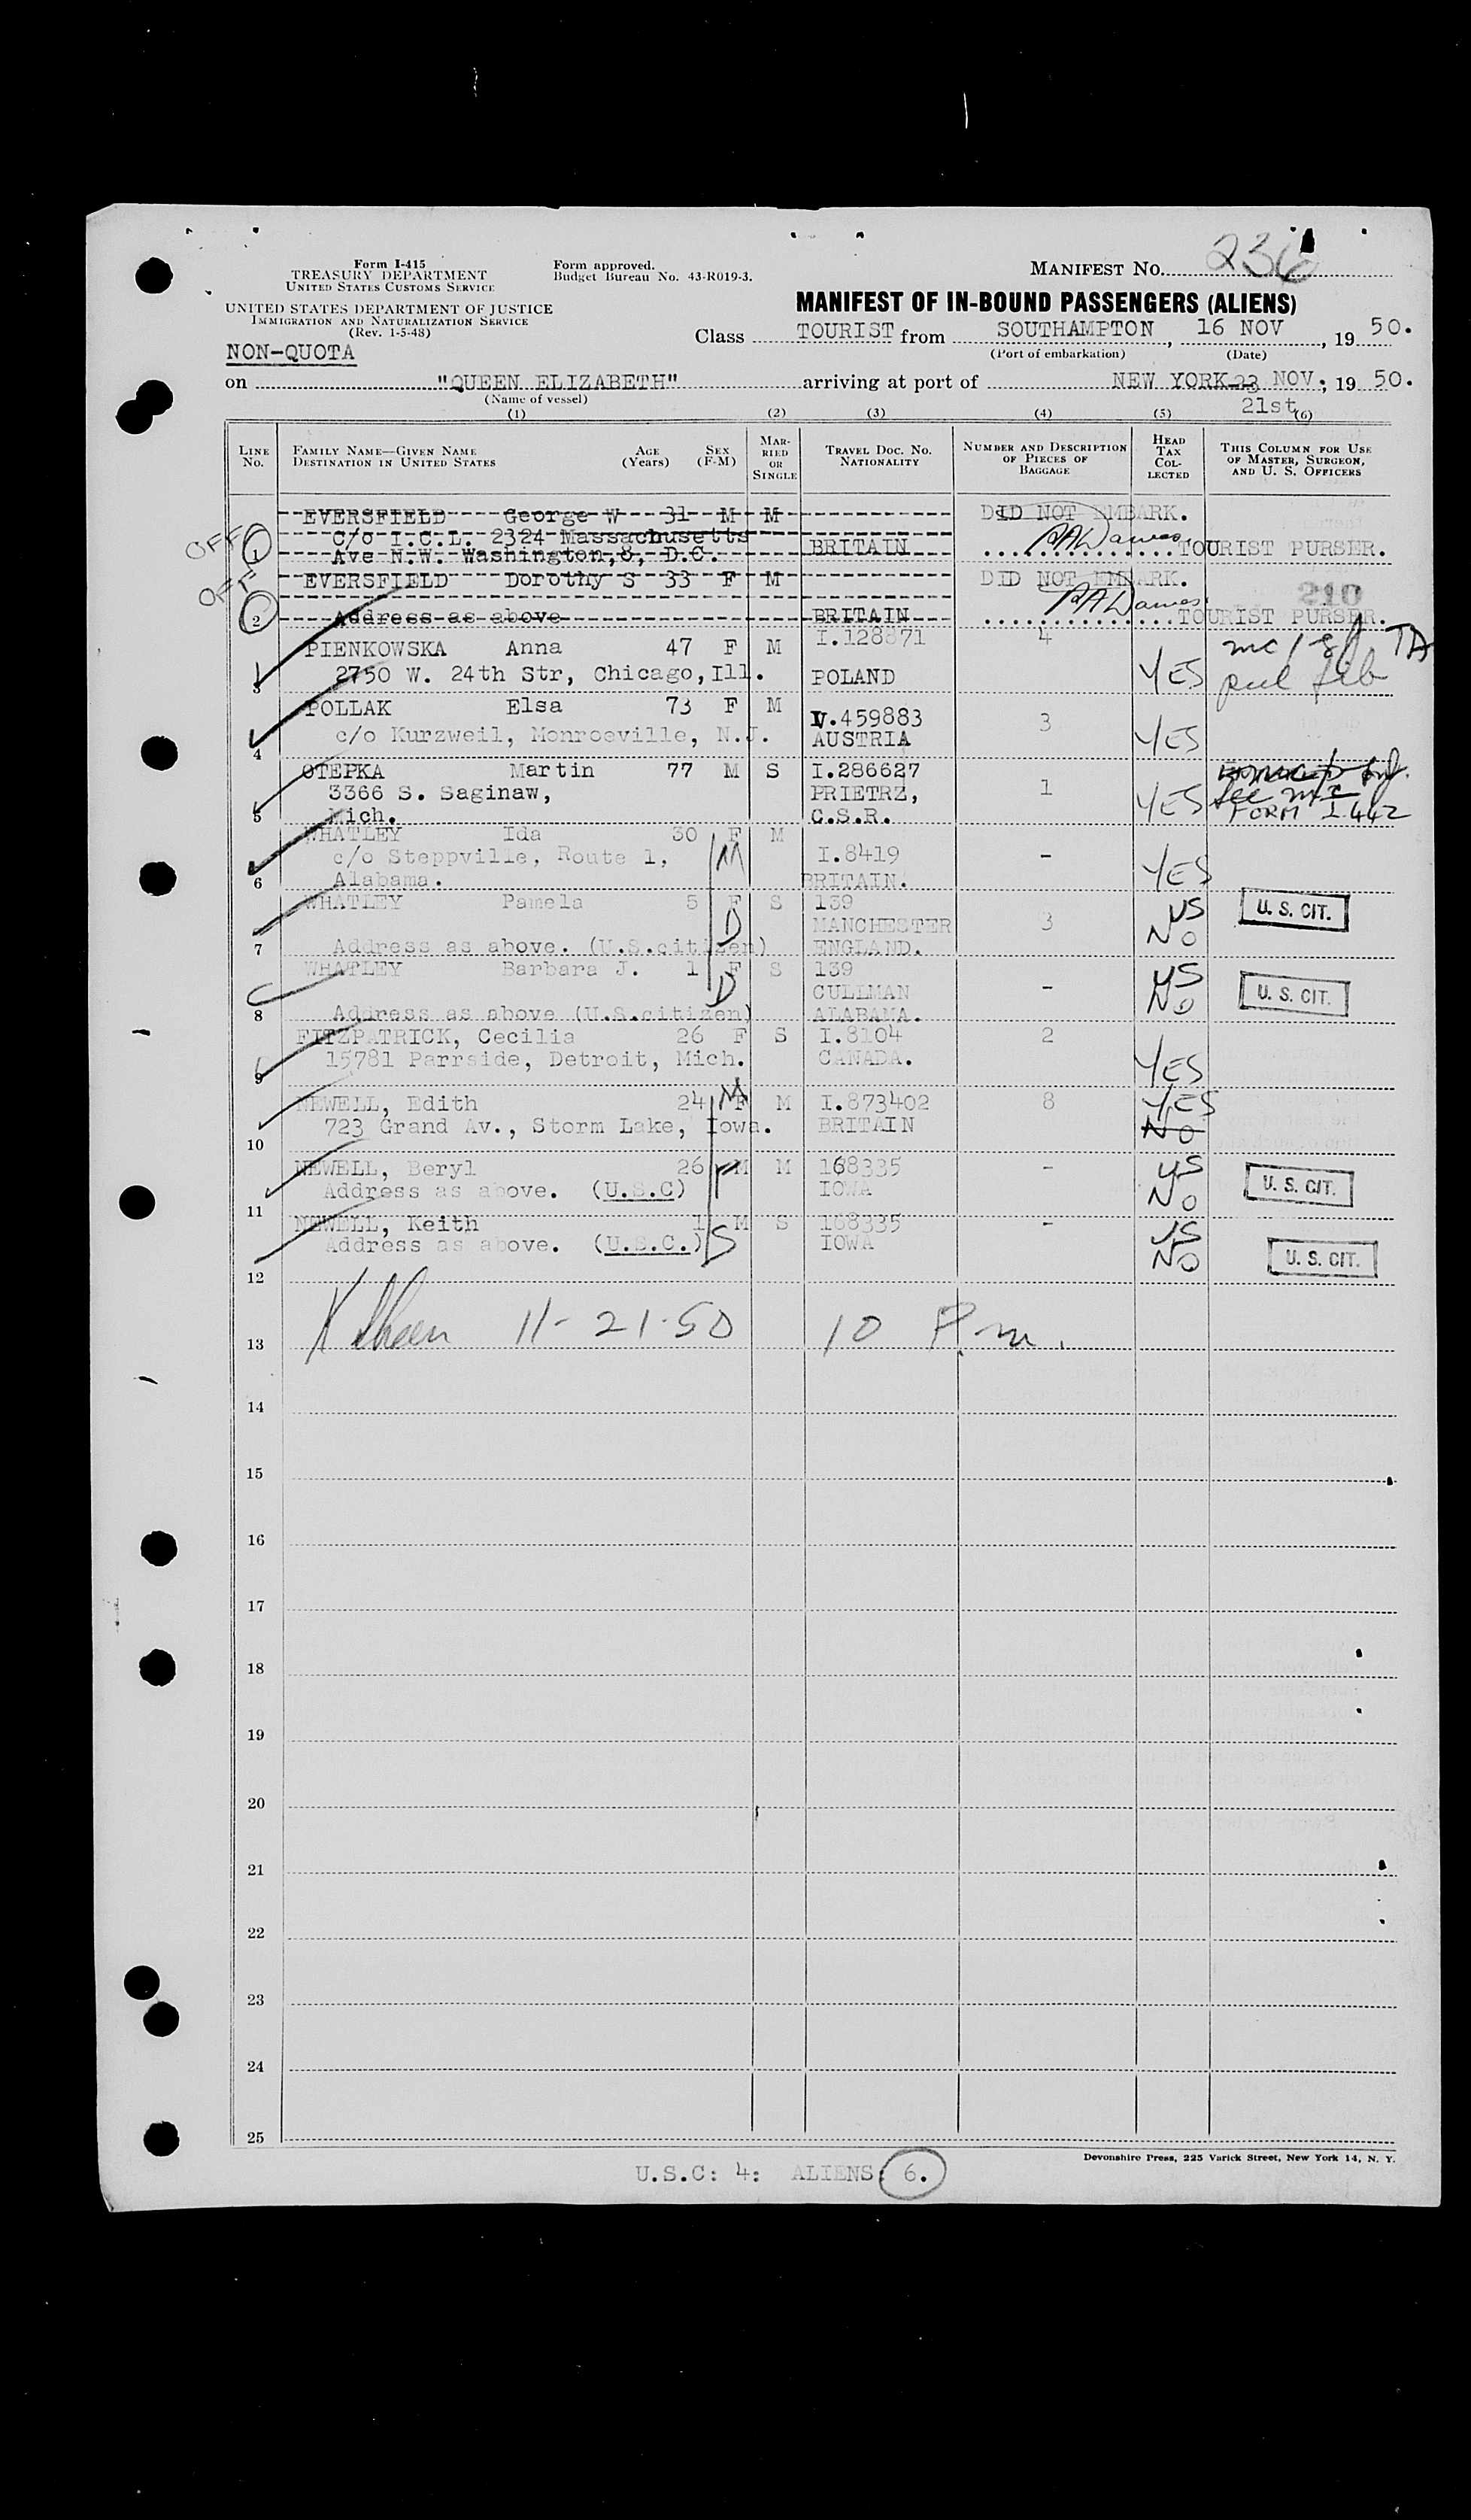 Form I-415
TREASURY DEPARTMENT
UNITED STATES CUSTOMS SERVICE
Form approved.
Budget Bureau No. 43-R019-3.
MANIFEST No. 236
UNITED STATES DEPARTMENT OF JUSTICE
IMMIGRATION AND NATURALIZATION SERVICE
(Rev. 1-5-48)
MANIFEST OF IN-BOUND PASSENGERS (ALIENS)
NON-QUOTA
Class TOURIST from SOUTHAMPTON, 16 NOV, 1950.
(Port of embarkation) (Date)
on "QUEEN ELIZABETH" arriving at port of NEW YORK 23 NOV; 1950.
(Name of vessel)
21st
(1) (2) (3) (4) (5) (6)
LINE No. FAMILY NAME—GIVEN NAME DESTINATION IN UNITED STATES AGE (Years) SEX (F-M) MARRIED OR SINGLE TRAVEL DOC. NO. NATIONALITY NUMBER AND DESCRIPTION OF PIECES OF BAGGAGE HEAD TAX COLLECTED THIS COLUMN FOR USE OF MASTER, SURGEON, AND U. S. OFFICERS
EVERSFIELD George W 31 M M DID NOT EMBARK.
OFF 1 c/o I.C.L. 2324 Massachusetts
Ave N.W. Washington,8, D.C. BRITAIN TOURIST PURSER.
OFF EVERSFIELD Dorothy S 33 F M DID NOT EMBARK.
210
2 Address as above BRITAIN TOURIST PURSER.
PIENKOWSKA Anna 47 F M I.128871 4
3 2750 W. 24th Str, Chicago,Ill. POLAND YES
POLLAK Elsa 73 F M V.459883 3
4 c/o Kurzweil, Monroeville, N.J. AUSTRIA YES
OTEPKA Martin 77 M S I.286627
3366 S. Saginaw, PRIETRZ, 1 YES see
5 Mich. C.S.R. FORM I-442
WHATLEY Ida 30 F M
c/o Steppville, Route 1, M I.8419 - YES
6 Alabama. BRITAIN.
WHATLEY Pamela 5 F S 139 US U. S. CIT.
D MANCHESTER 3 NO
7 Address as above. (U.S.citizen) ENGLAND.
WHATLEY Barbara J. 1 F S 139 US
D CULLMAN - NO U. S. CIT.
8 Address as above (U.S.citizen) ALABAMA.
FITZPATRICK, Cecilia 26 F S I.8104 2
9 15781 Parrside, Detroit, Mich. CANADA. YES
NEWELL, Edith 24 M F M I.873402 8 YES
10 723 Grand Av., Storm Lake, Iowa. BRITAIN NO
NEWELL, Beryl 26 F M M 168335 - US
11 Address as above. (U.S.C) IOWA NO U. S. CIT.
NEWELL, Keith 1 M S 168335 - US
12 Address as above. (U.S.C.) S IOWA NO U. S. CIT.
13 11-21-50 10 P.m.
14
15
16
17
18
19
20
21
22
23
24
25
Devonshire Press, 225 Varick Street, New York 14, N. Y.
U.S.C: 4: ALIENS: 6.